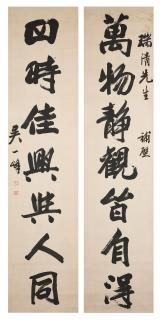 瑞清先生 補壁
萬物靜觀皆自得
四時佳興與人同
吳一峰